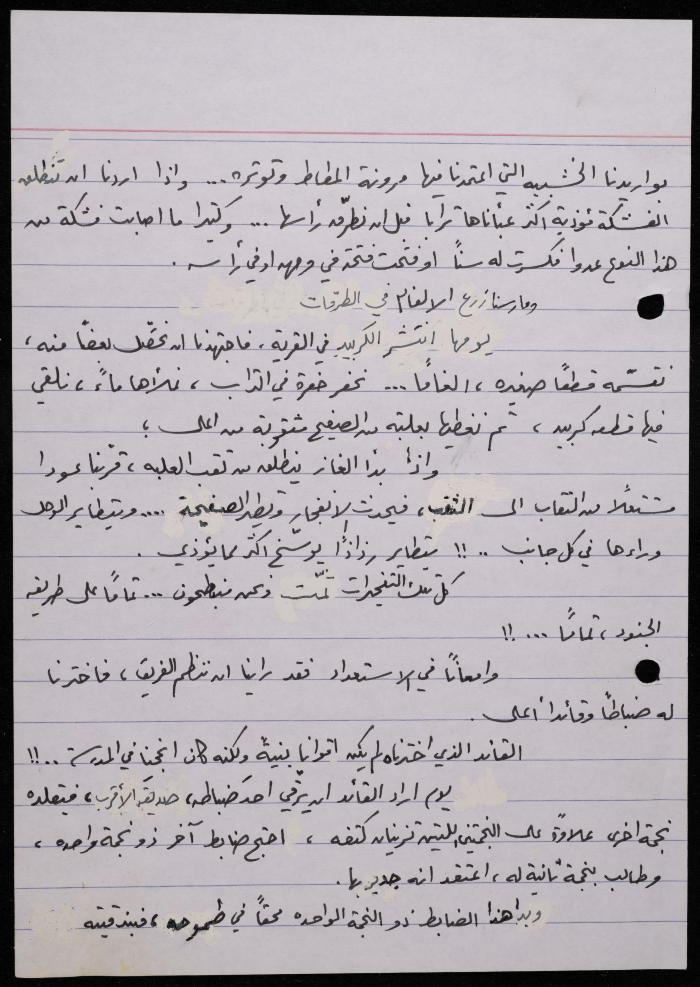 بواريدنا الخشبيه التي اعتمدنا فيها مرونة المطاط وتوتره ... واذا اردنا ان تنطلق
الفشكة مؤذية اكثر عبأناها ترابا قبل ان نطرّق رأسها ... وكثيرا ما اصابت فشكة من
هذا النوع عدوا فكسرت له سناً او فتحت فتحة في وجهه او في رأسه .
ومارسنا زرع الالغام في الطرقات
يومها انتشر الكربيد في القرية ، فاجتهدنا ان نحصّل بعضاً منه ،
نقسّمه قطعًا صغيره ، الغامًا ... نحفر حفرة في التراب ، نملأها ماءً ، نلقي
فيها قطعه كربيد ، ثم نغطيها بعلبة من الصفيح مثقوبة من اعلى ؛
واذا بدأ الغاز ينطلق من ثقب العلبه ، قرّبنا عودا
مشتعلًا من الثقاب الى الثقب ، فيحدث الانفجار وتطير الصفيحة .... ويتطاير الوحل
وراءها في كل جانب .. !! يتطاير رذاذًا يوسّخ اكثر مما يؤذي .
كل تلك التفجيرات تمّت ونحن منبطحون ... تمامًا على طريقه
الجنود ، تمامًا ... !!
وامعانًا في الاستعداد فقد راينا ان ننظم الفريق ، فاخترنا
له ضباطًا وقائدا أعلى .
القائد الذي اخترناه لم يكن اقوانا بنيةً ولكنه كان انجبنا في المدرسة .. !!
يوم اراد القائد ان يرّقي احد ضباطه ، صديقه الأقرب ، فيقلده
نجمة اخرى علاوةً على النجمتين اللتين تزينان كتفه ، احتج ضابط آخر ذو نجمة واحده ،
وطالب بنجمة ثانية له ، اعتقد انه جدير بها .
وبدا هذا الضابط ذو النجمة الواحده محقاً في طموحه ، فبندقيته